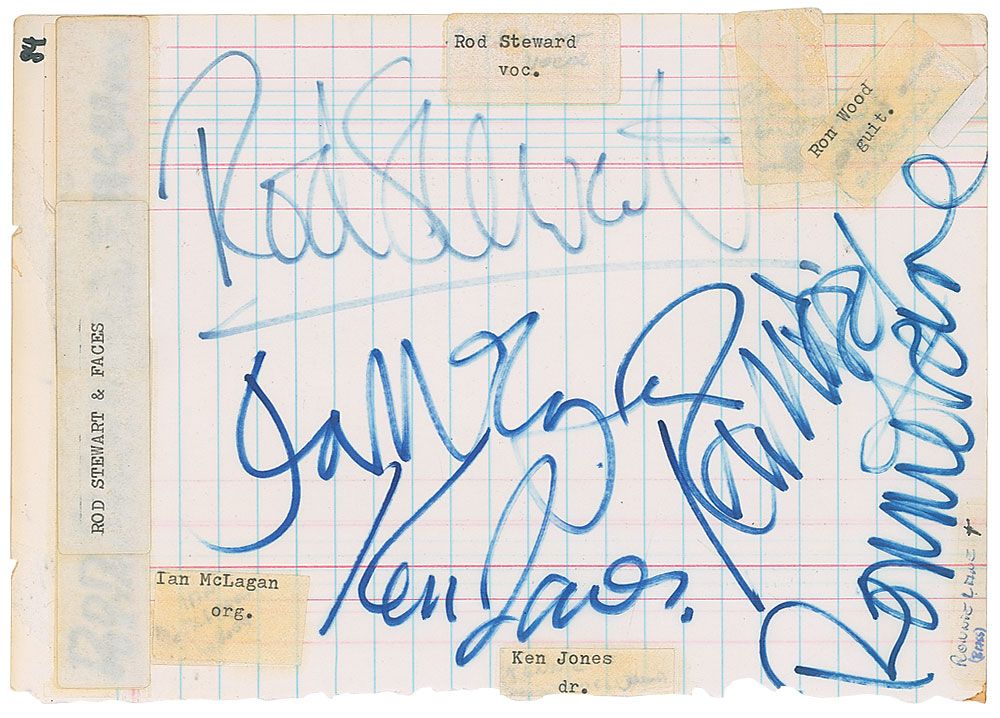 84
Rod Steward
voc.
Ron Wood
guit.
Rod Stewart
ROD STEWART & FACES
Ian McLagan
Ron Wood
Ronnie Lane
Ken Jones.
Ian McLagan
org.
Ken Jones
dr.
RONNIE LANE +
(BASS)